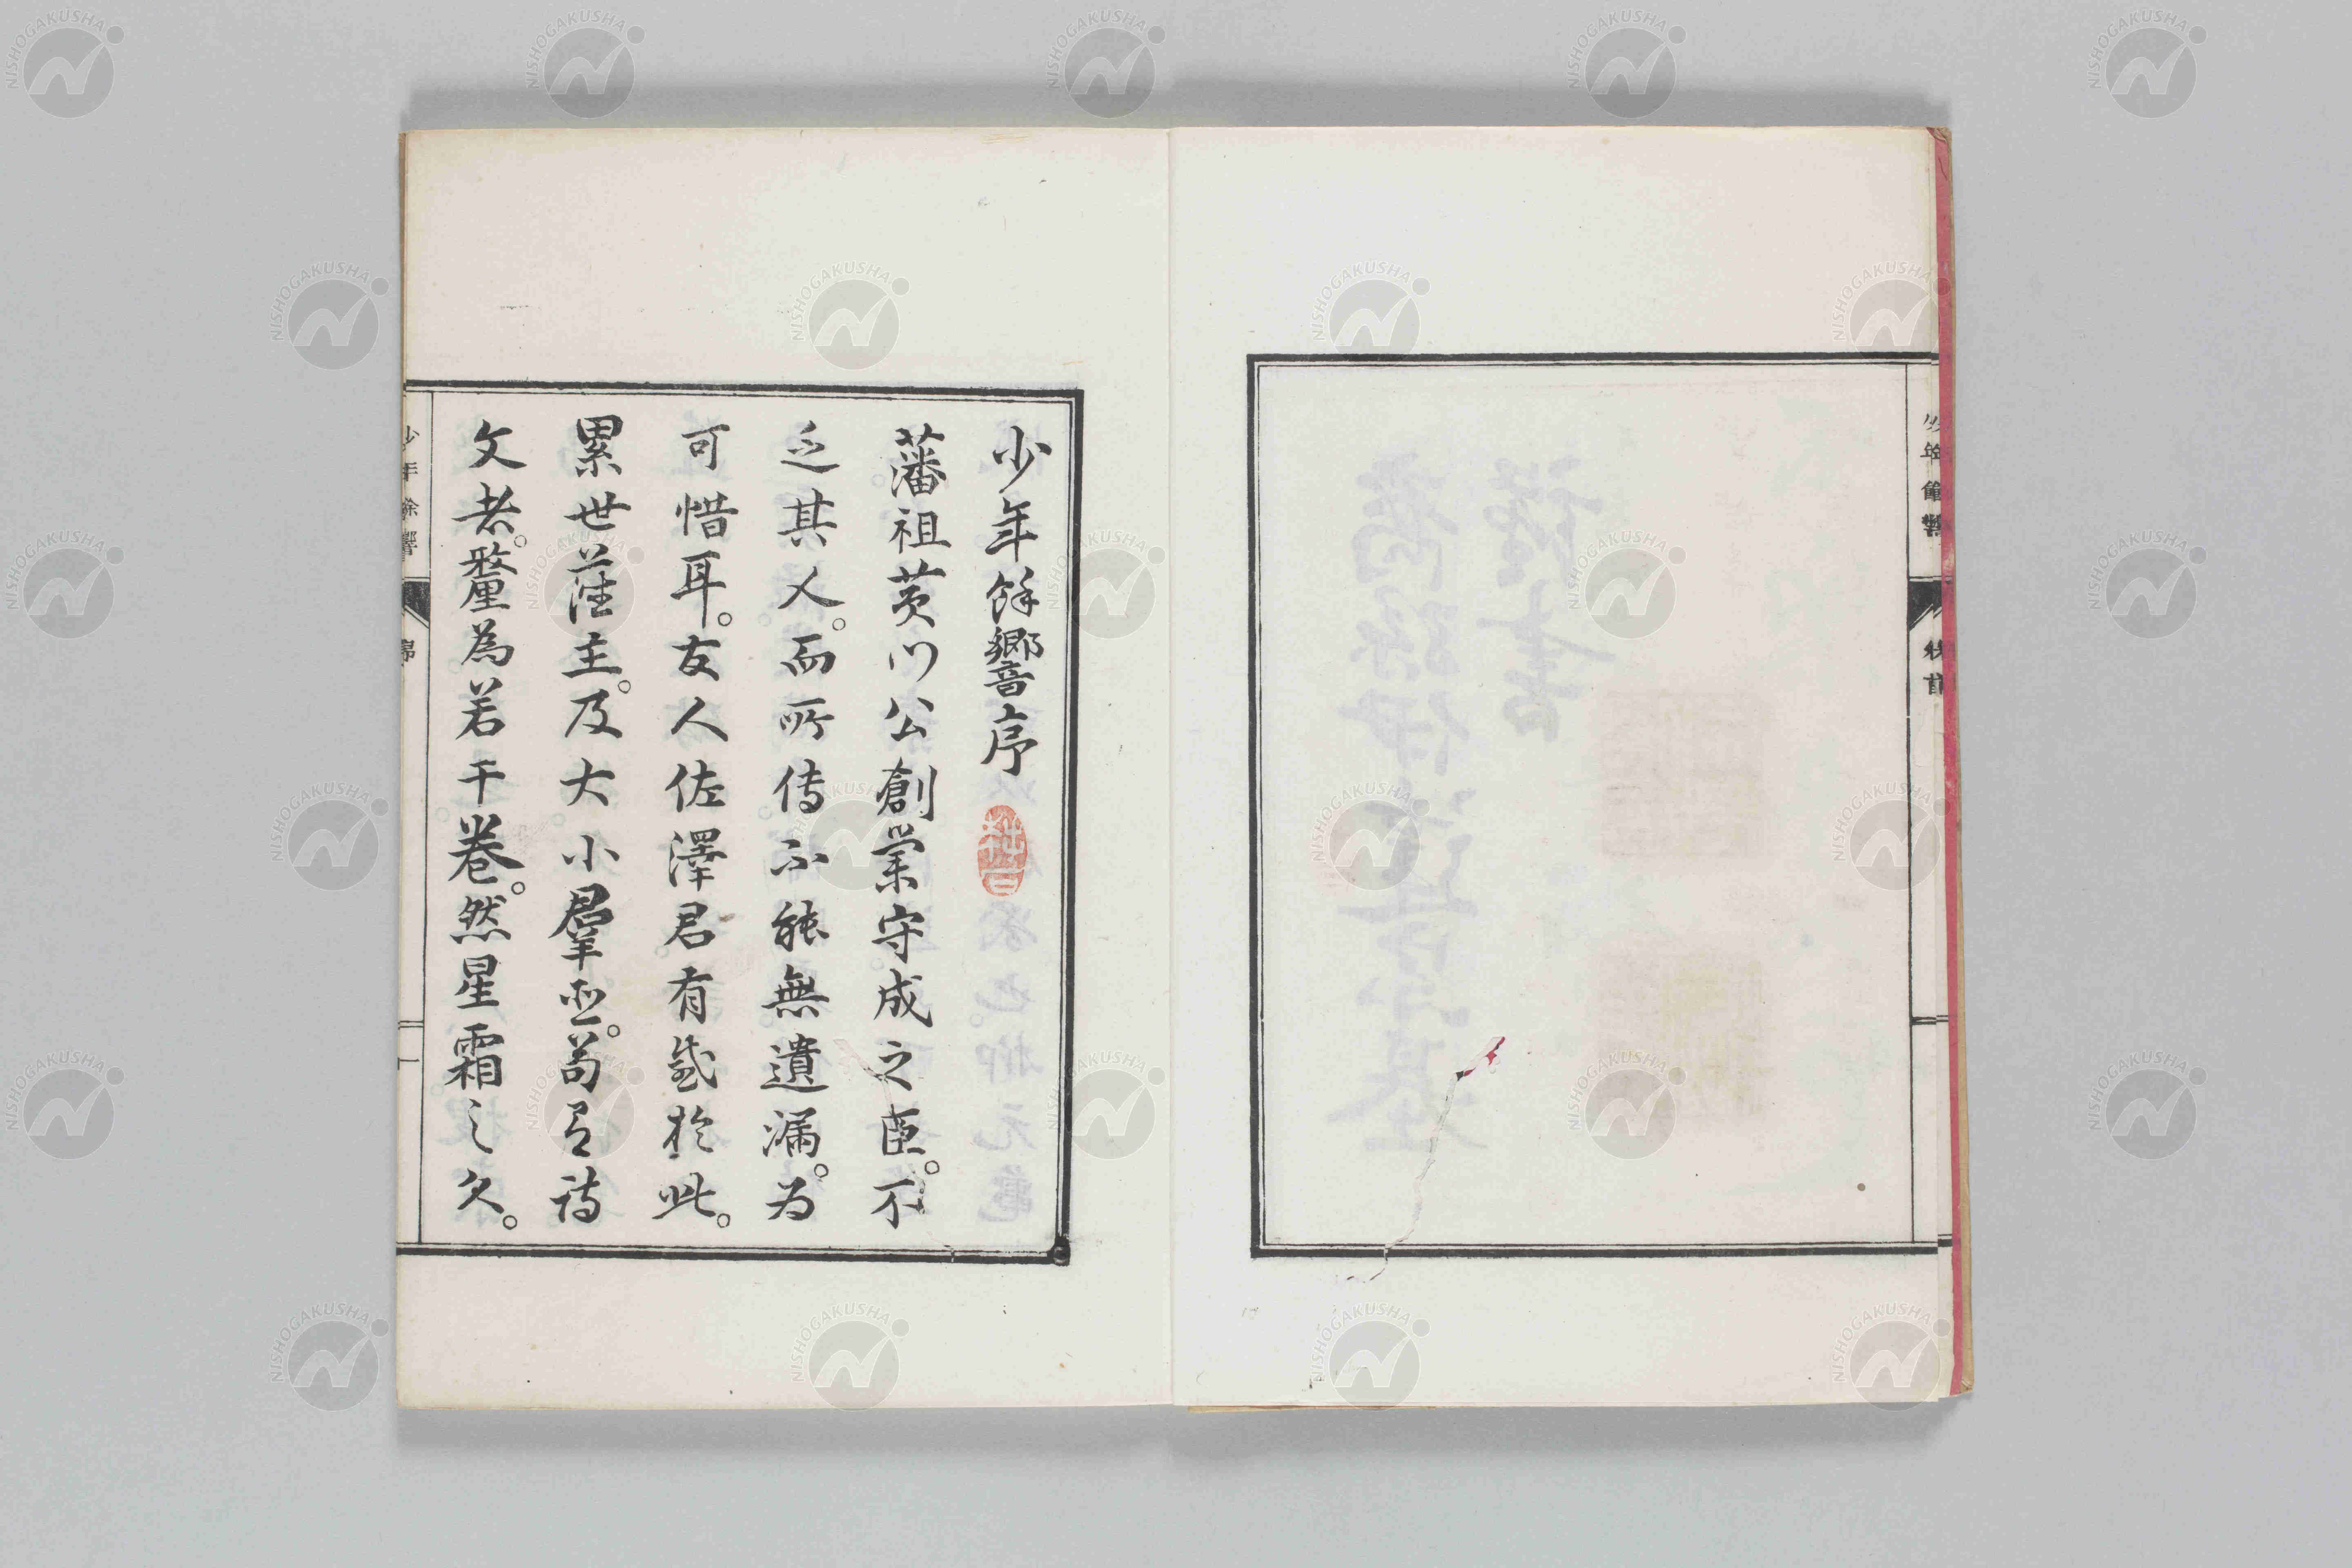 少年餘響
卷首
少年餘響序
藩祖黄門公創業守成之臣。不
乏其人。而所傳不能無遺漏。為
可惜耳。友人佐澤君有感於此。
累世藩主。及大小羣臣。苟有詩
文者。釐為若干卷。然星霜之久。
少年餘響
一
NISHOGAKUSHA